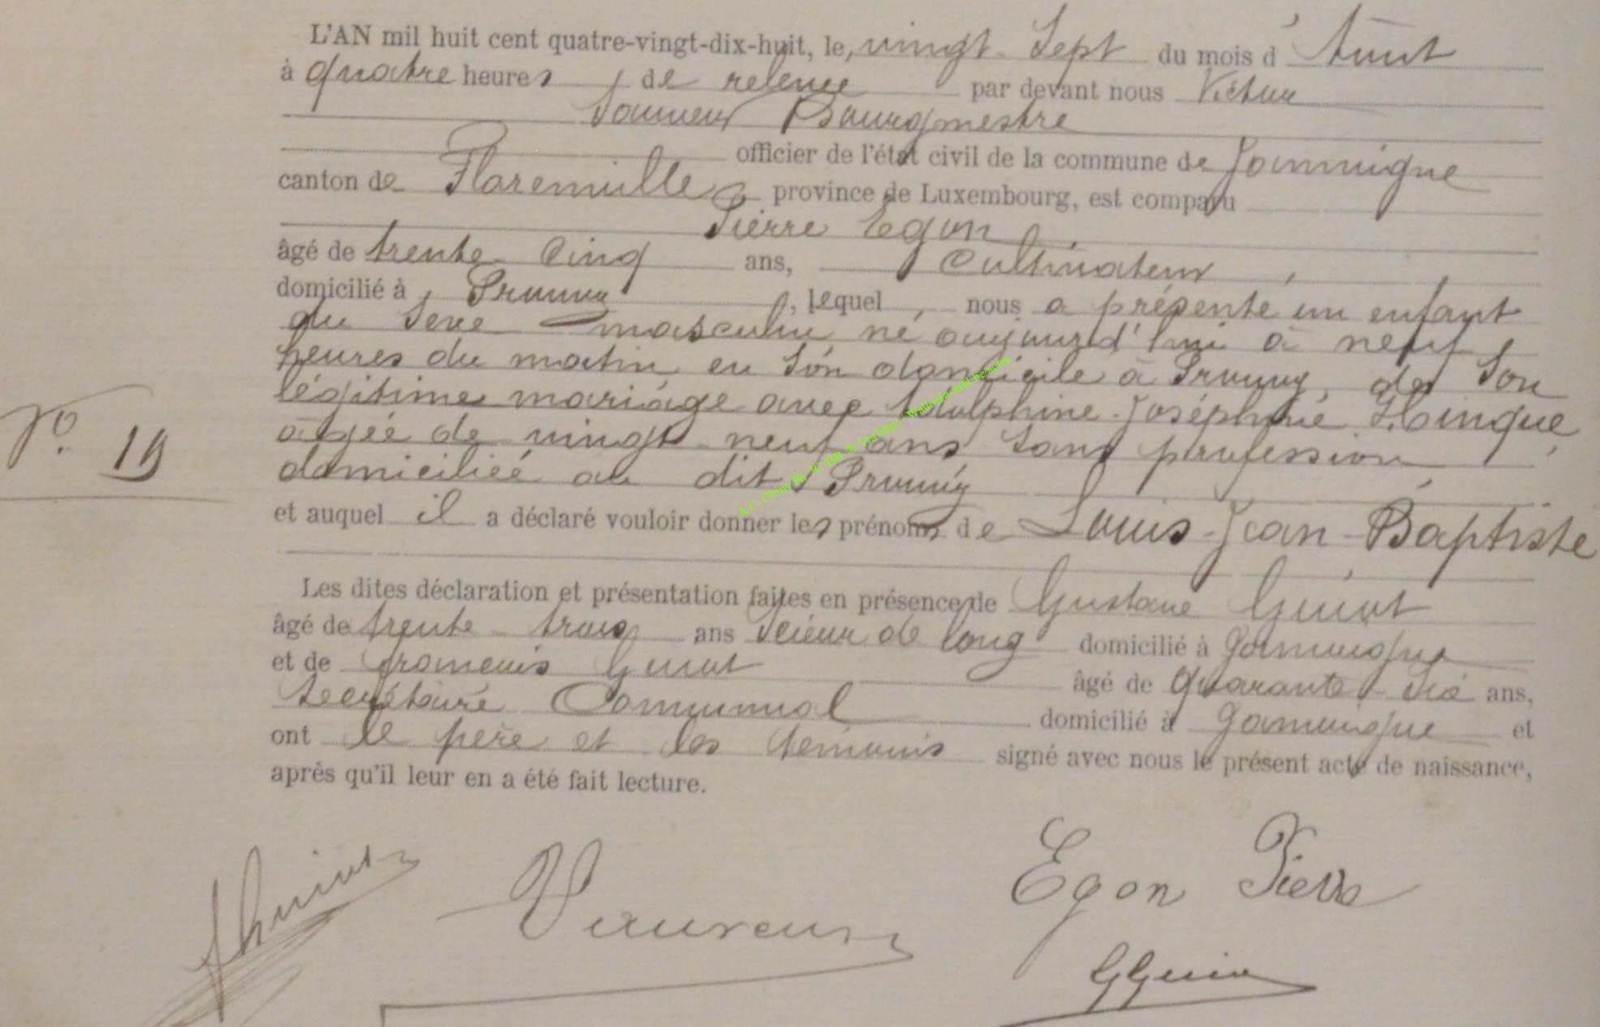 L'AN mil huit cent quatre-vingt-dix-huit, le, vingt Sept du mois d' Août
à quatre heures de relevée par devant nous Victor
Bourgmestre
officier de l'état civil de la commune de Jamoigne
canton de Florenville province de Luxembourg, est comparu
Pierre Egon
âgé de trente cinq ans, Cultivateur,
domicilié à Prouvy, lequel nous a présenté un enfant
du sexe masculin né aujourd'hui à neuf
heures du matin en son domicile à Prouvy, de son
légitime mariage avec Adolphine-Joséphine
agée de vingt neuf ans sans profession
domiciliée au dit Prouvy
et auquel il a déclaré vouloir donner les prénoms de Louis-Jean-Baptiste
Les dites déclaration et présentation faites en présence de Gustave Guiot
âgé de trente trois ans Scieur de long domicilié à Jamoigne
et de François Guiot âgé de quarante six ans,
Secrétaire Communal domicilié à Jamoigne et
ont le père et les témoins signé avec nous le présent acte de naissance,
après qu'il leur en a été fait lecture.
N° 19
Egon Pierre